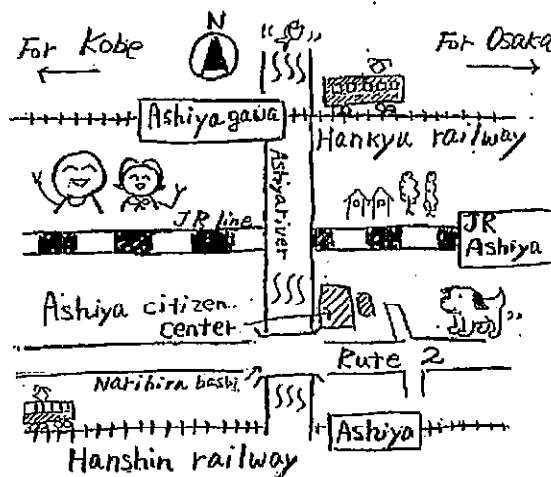 N
For Kobe
For Osaka
Ashiyagawa
Hankyu railway
Ashiya river
JR line
JR
Ashiya
Ashiya citizen
center
Rute 2
Narihira bashi
Ashiya
Hanshin railway